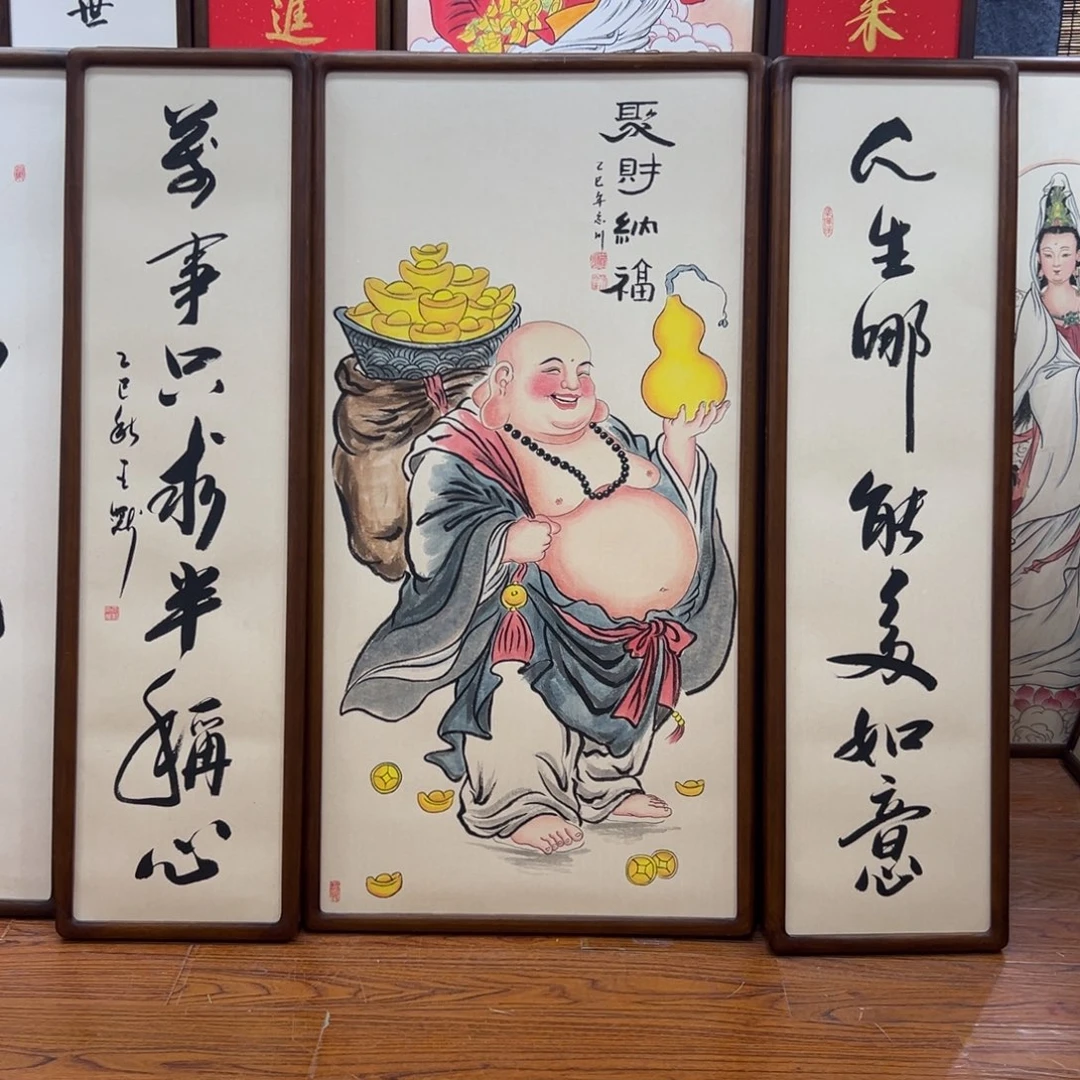 人生哪能多如意
聚財納福
乙巳年志川
萬事只求半稱心
乙巳秋王
世
進
來